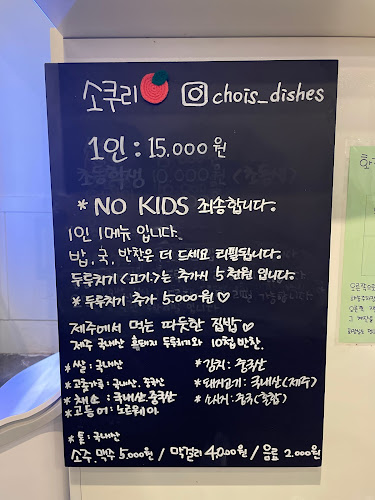 소쿠리 chois_dishes
1인 : 15.000원
* NO KIDS 죄송합니다.
1인 1메뉴 입니다.
밥, 국, 반찬은 더 드세요 리필됩니다.
두루치기 <고기>는 추가시 5천원 입니다.
* 두루치기 추가 5000원 ♡
제주에서 먹는 따뜻한 집밥 ♡
제주 국내산 흑돼지 두루치기와 10첩 반찬.
* 쌀 : 국내산
* 김치 : 중국산
* 고춧가루 : 국내산. 중국산
* 돼지고기 : 국내산 (제주)
* 채소 : 국내산. 중국산
* 고등어 : 노르웨이
* 톳 : 국내산
소주. 맥주 5.000원 / 막걸리 4000원 / 음료 2.000원